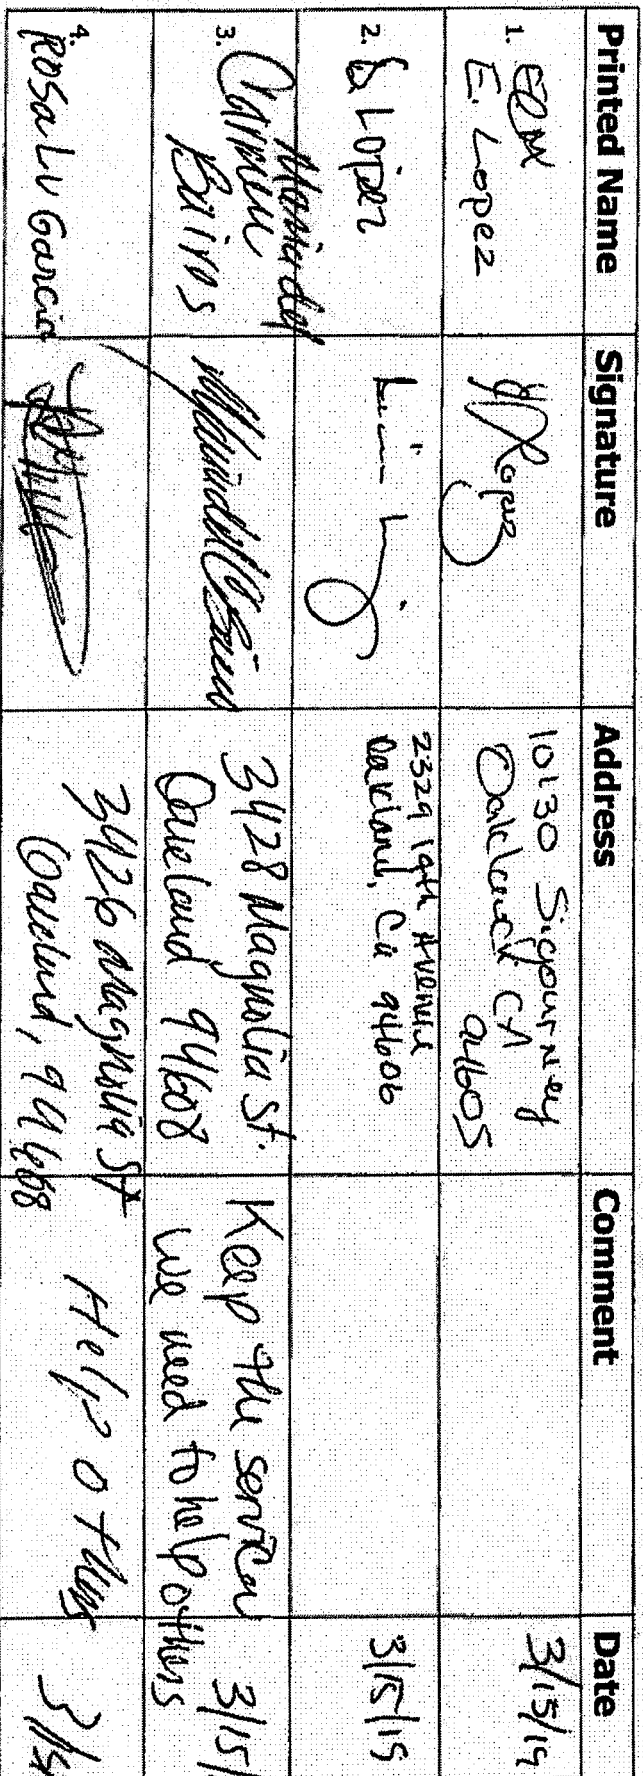 Printed Name Signature Address Comment Date
1.
E. Lopez
Lopez
10130 Sigourney
Oakland CA
94605
3/15/19
2. Lopez
2329 19th Avenue
Oakland, Ca 94606
3/15/19
3. Maria del
Carmen
3428 Magnolia St.
Oakland 94608
Keep the services
we need to help others
3/15/
4. Rosa Lv Garcia
3426 Magnolia St
Oakland, 94608
Help others
3/15